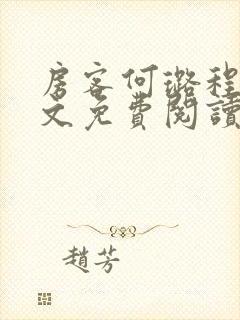 房客何璐程
文免費閱讀
趙芳